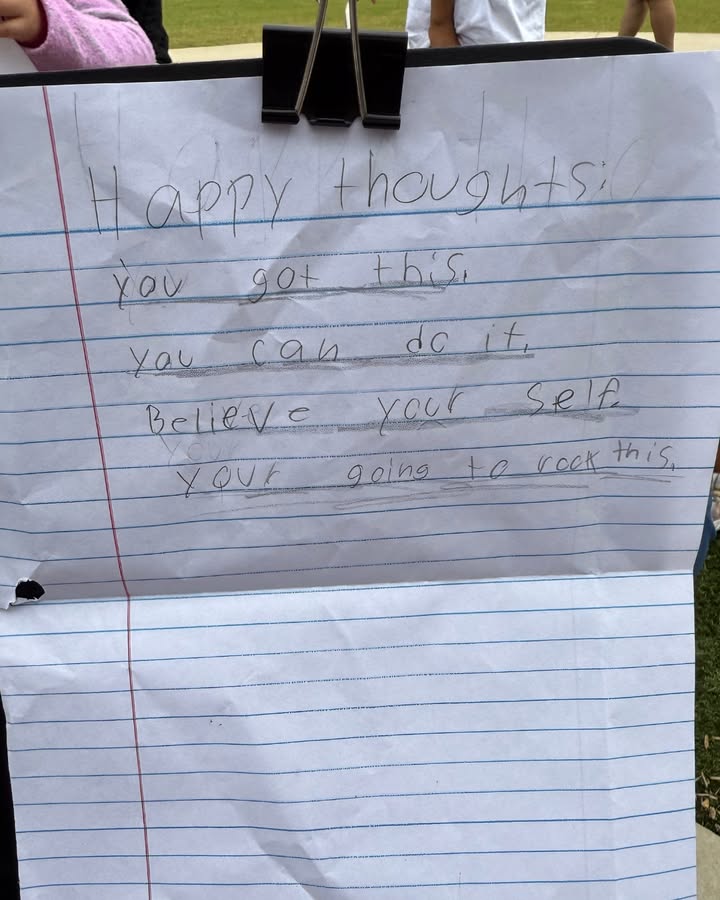 Happy thoughts:
You got this.
you can do it.
Believe your self.
your going to rock this.